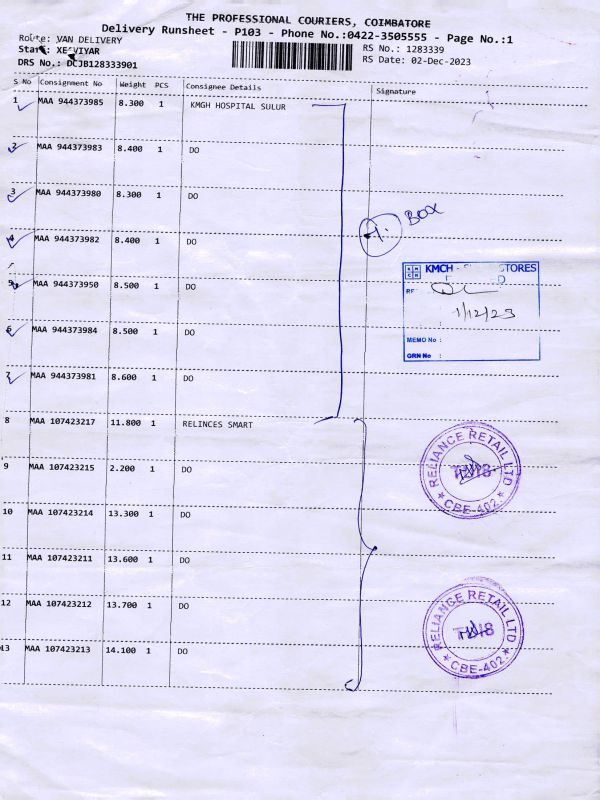 THE PROFESSIONAL COURIERS, COIMBATORE
Delivery Runsheet - P103 - Phone No.:0422-3505555 - Page No.:1
Route: VAN DELIVERY
RS No.: 1283339
RS Date: 02-Dec-2023
DRS No.: DCJB128333901
S No Consignment No Weight PCS Consignee Details Signature
1 MAA 944373985 8.300 1 KMGH HOSPITAL SULUR
2 MAA 944373983 8.400 1 DO
3 MAA 944373980 8.300 1 DO
7. BOX
4 MAA 944373982 8.400 1 DO
KMCH - STORES
5 MAA 944373950 8.500 1 DO
1/12/23
6 MAA 944373984 8.500 1 DO
MEMO No :
GRN No :
7 MAA 944373981 8.600 1 DO
8 MAA 107423217 11.800 1 RELINCES SMART
RELIANCE RETAIL LTD
★ CBE-402 ★
9 MAA 107423215 2.200 1 DO
10 MAA 107423214 13.300 1 DO
11 MAA 107423211 13.600 1 DO
12 MAA 107423212 13.700 1 DO
RELIANCE RETAIL LTD
★ CBE-402 ★
13 MAA 107423213 14.100 1 DO